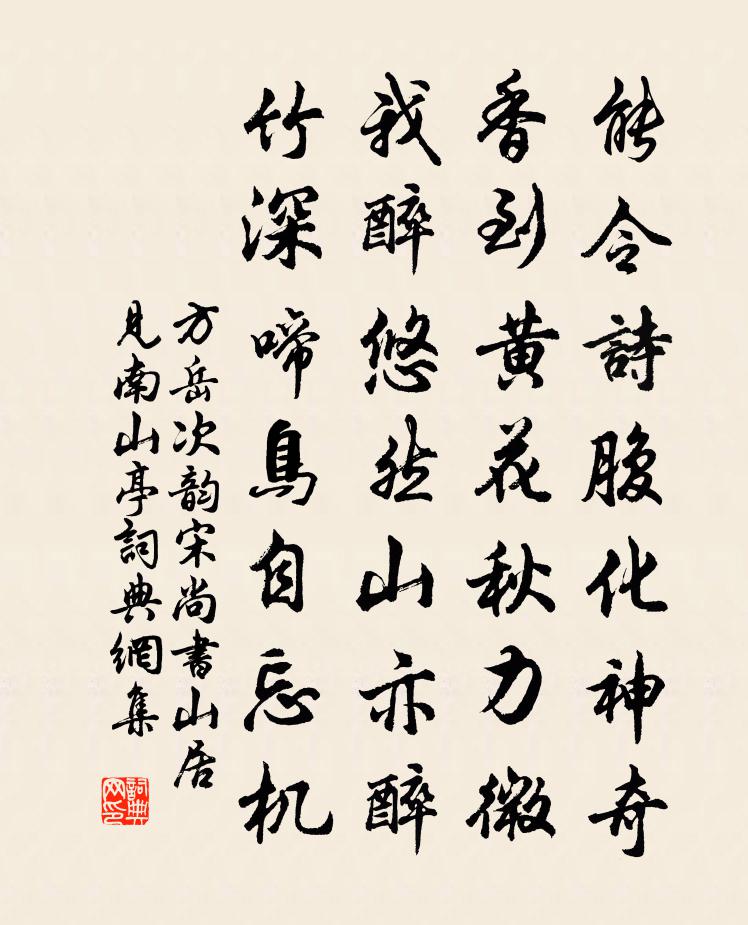 能令詩腹化神奇
香到黄花秋力微
我醉悠然山亦醉
竹深啼鳥自忘机
方岳次韵宋尚書山居
見南山亭詞典網集
詞典网印